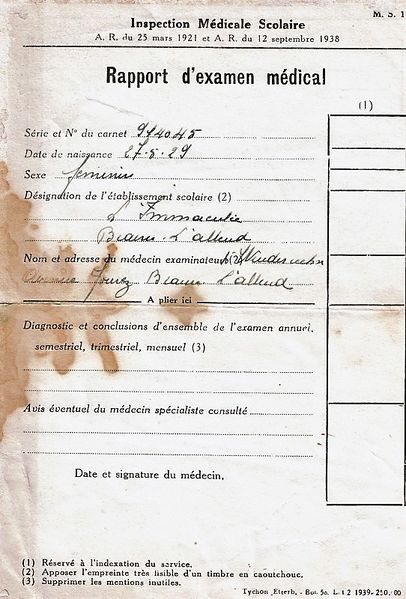 M. S. 1
Inspection Médicale Scolaire
A. R. du 25 mars 1921 et A. R. du 12 septembre 1938
Rapport d'examen médical
(1)
Série et N° du carnet 914045
Date de naissance 27-5-29
Sexe feminin
Désignation de l'établissement scolaire (2)
L'Immaculée
Braine-L'alleud
Nom et adresse du médecin examinateur
Braine L'alleud
A plier ici
Diagnostic et conclusions d'ensemble de l'examen annuel,
semestriel, trimestriel, mensuel (3)
Avis éventuel du médecin spécialiste consulté
Date et signature du médecin.
(1) Réservé à l'indexation du service.
(2) Apposer l'empreinte très lisible d'un timbre en caoutchouc.
(3) Supprimer les mentions inutiles.
Tychon Etterb. - Bot. So. L t 2 1939-250.00